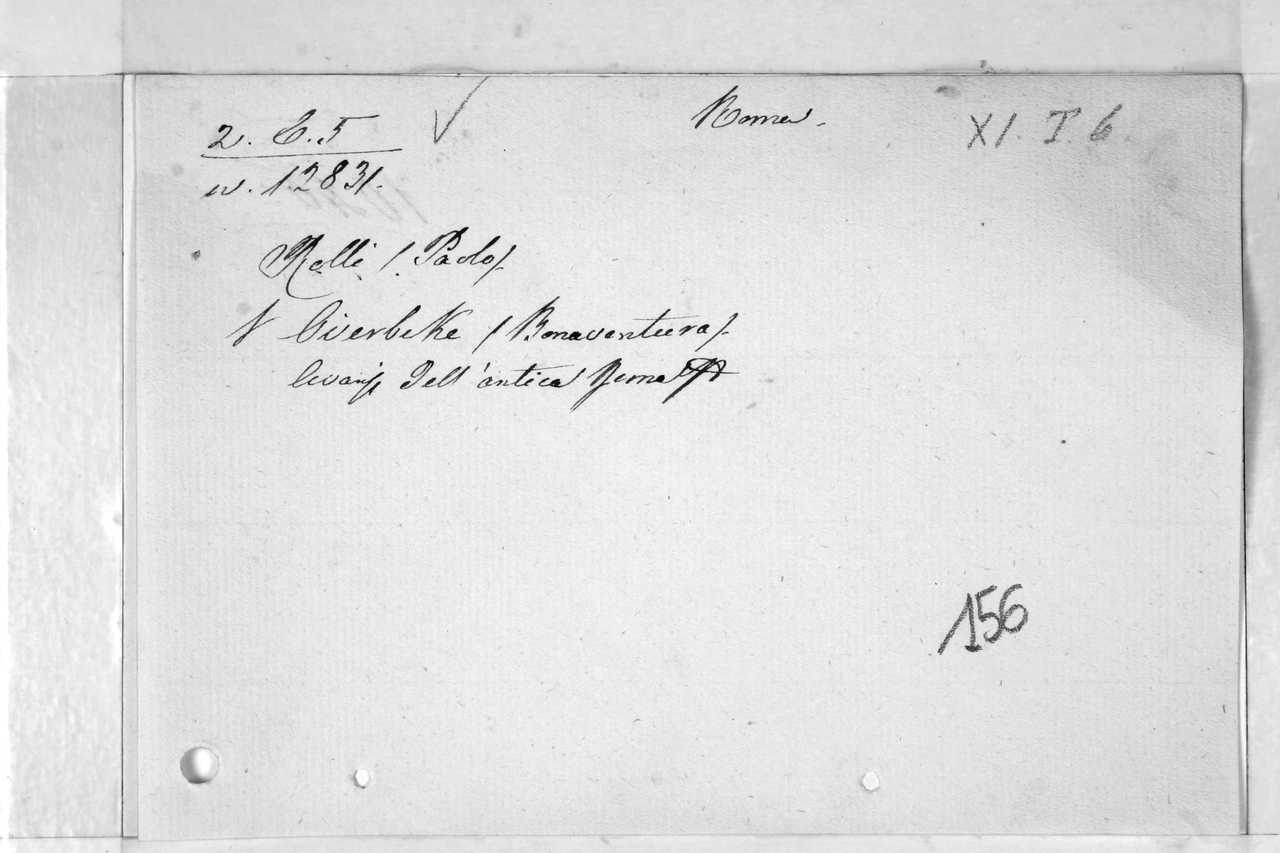 2. C. 5 Roma. XI. T. 6.
n. 12831.
Rolli /. Paolo /.
V Overbeke /. Bonaventura /.
Avanzi Dell' antica Roma
156